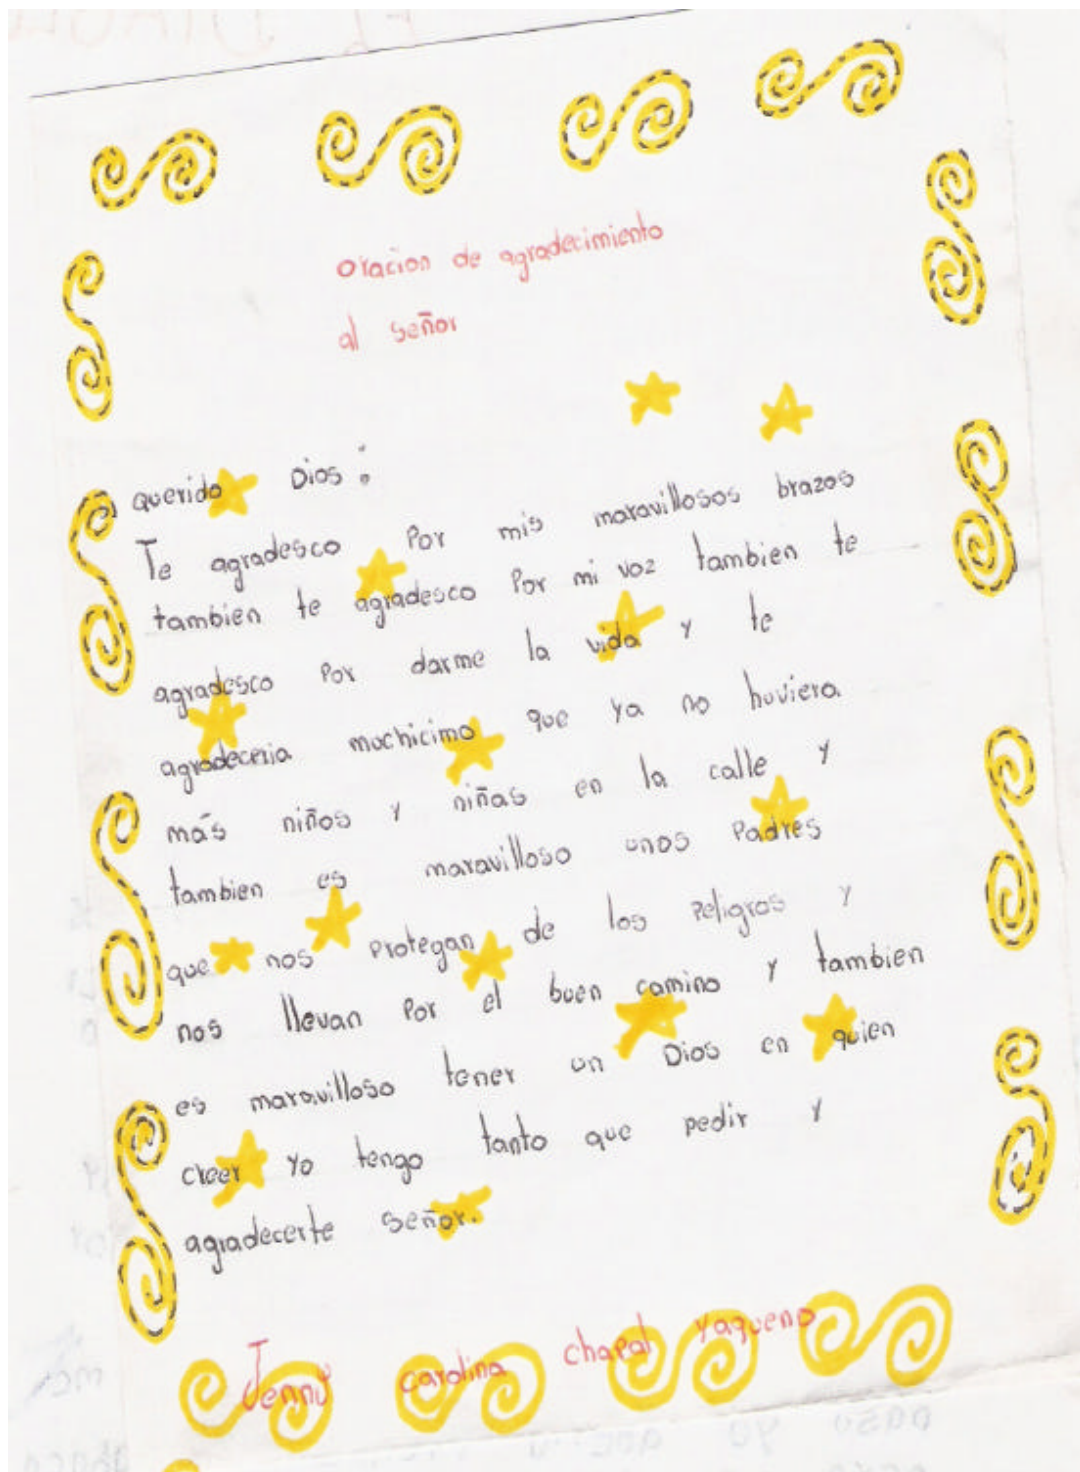 oracion de agradecimiento
al señor
querido Dios:
Te agradesco Por mis maravillosos brazos
tambien te agradesco Por mi voz tambien te
agradesco Por darme la vida y te
agradeceria muchicimo que ya no huviera
más niños y niñas en la calle y
tambien es maravilloso unos Padres
que nos protegan de los peligros y
nos llevan Por el buen camino y tambien
es maravilloso tener un Dios en quien
creer yo tengo tanto que pedir y
agradecerte señor.
Jenny carolina chapal yaqueno